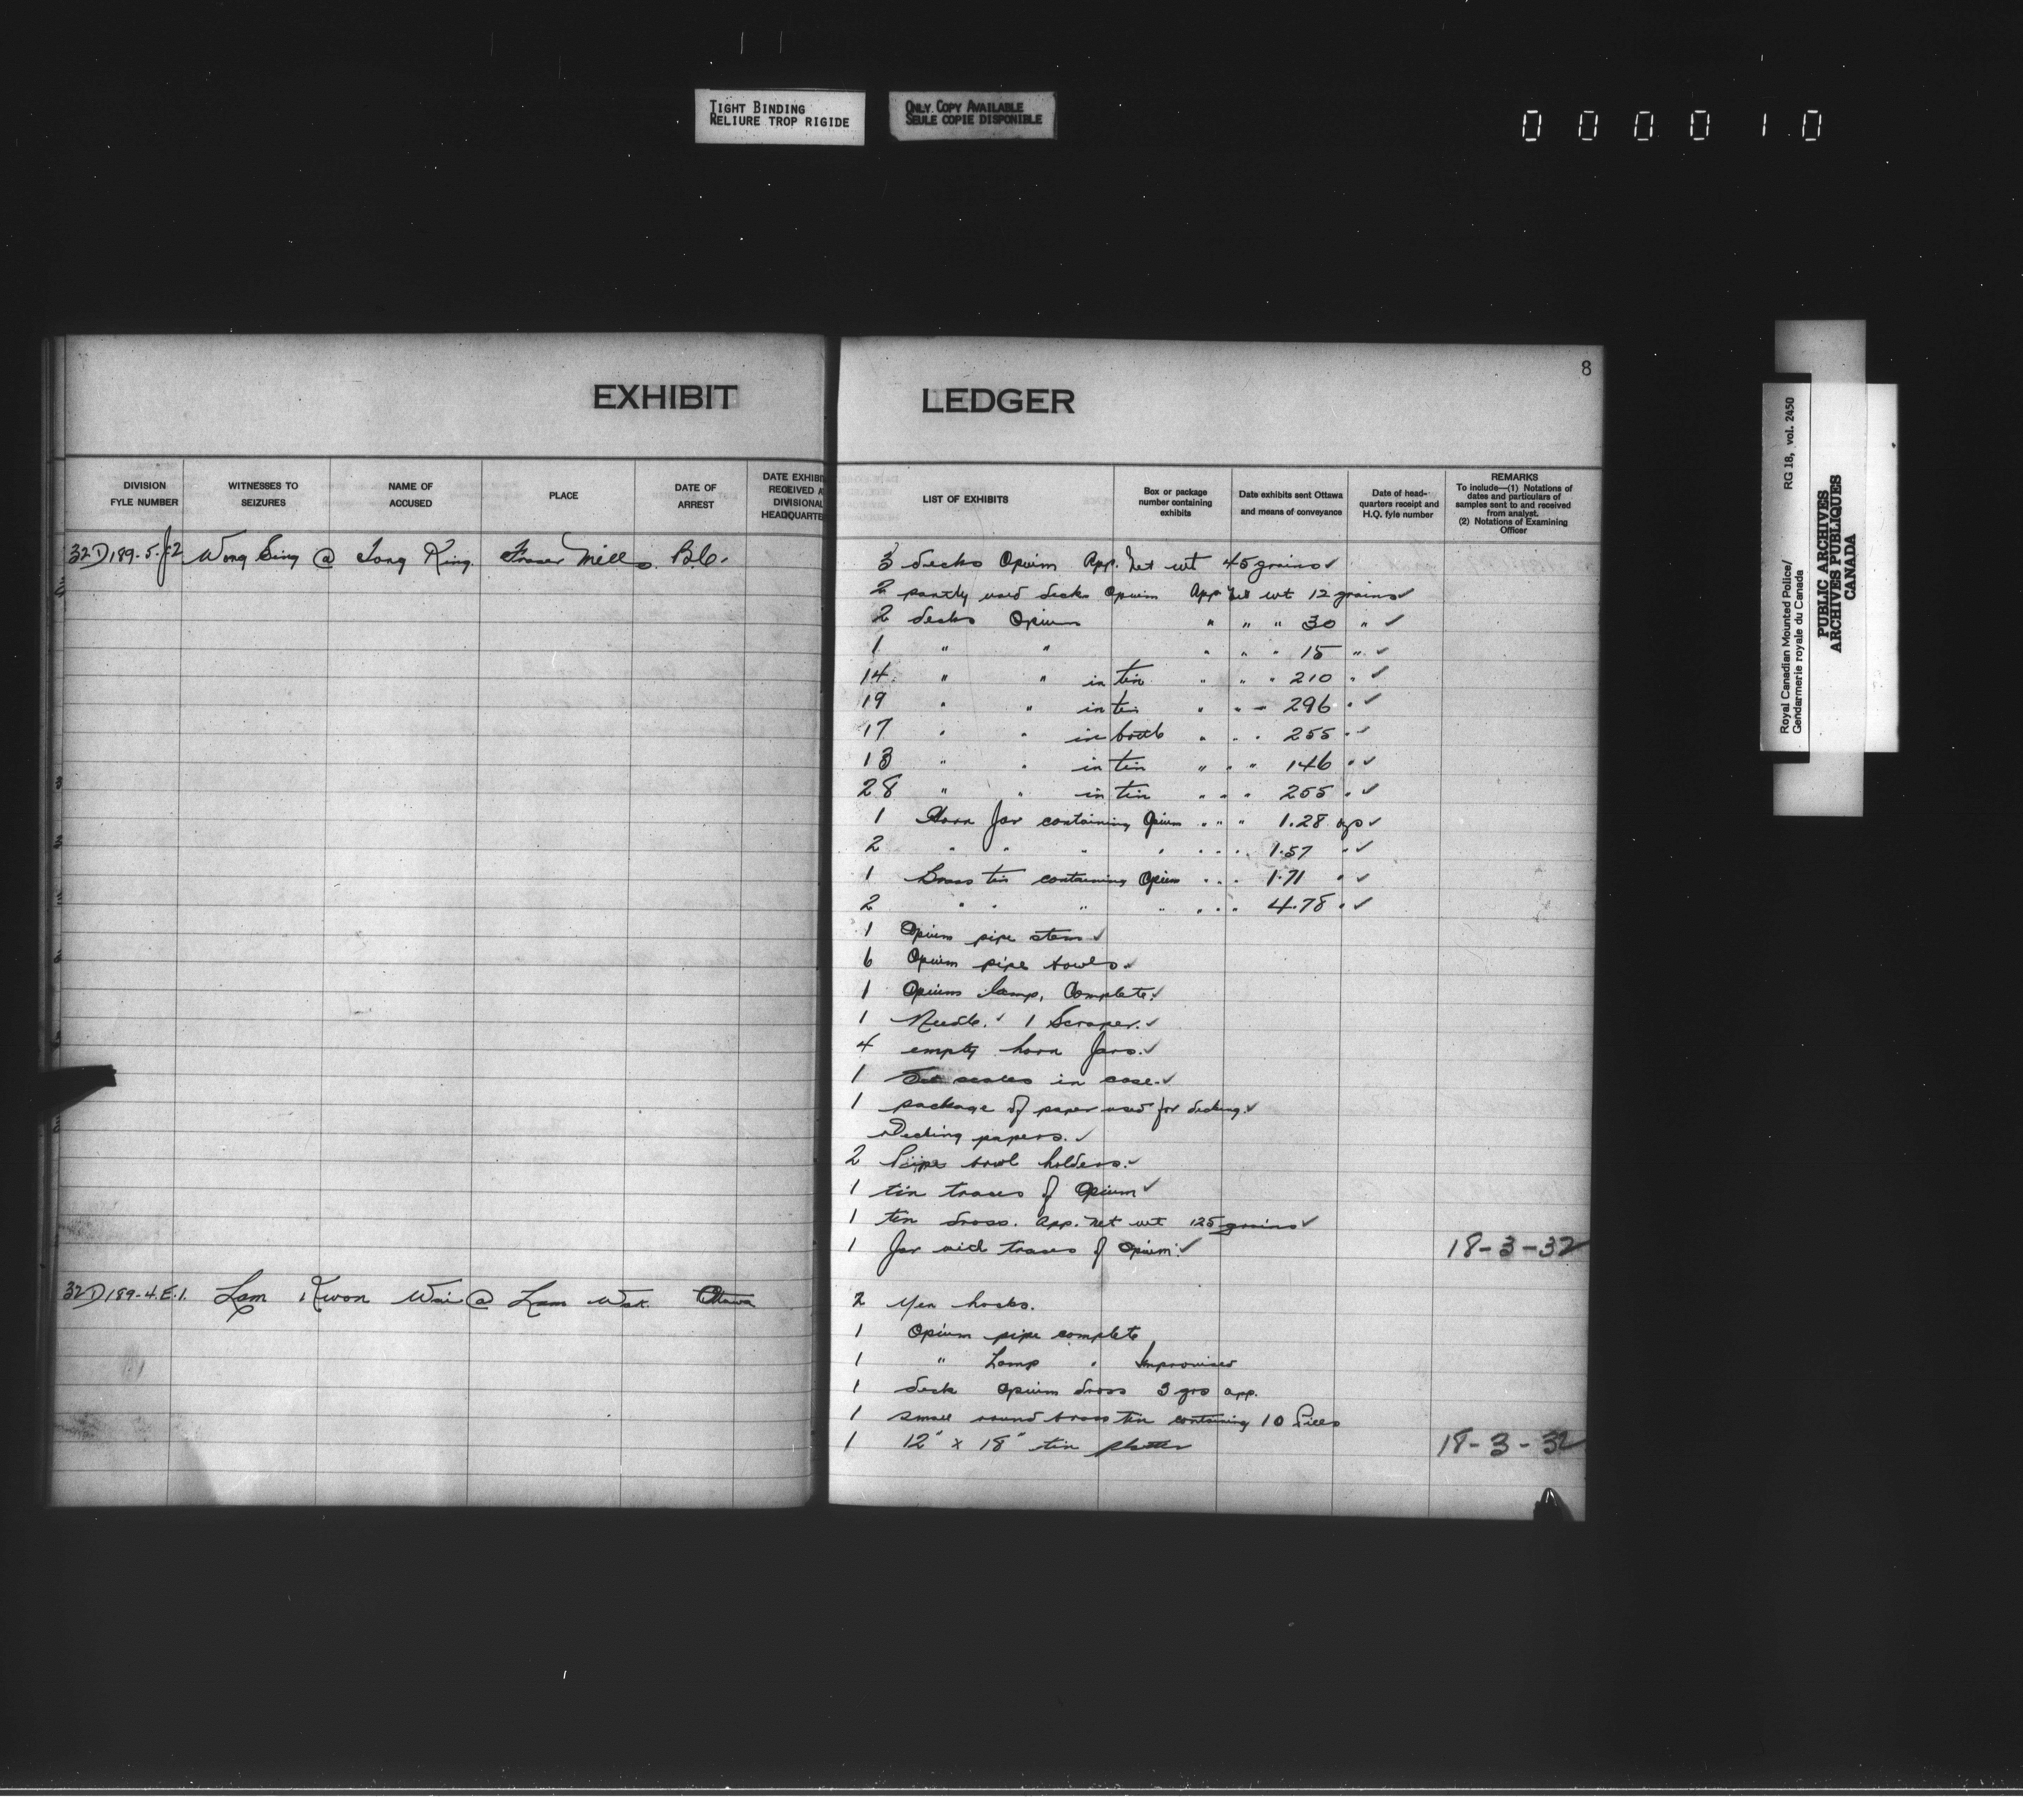 TIGHT BINDING
RELIURE TROP RIGIDE
ONLY COPY AVAILABLE
SEULE COPIE DISPONIBLE
000010
8
EXHIBIT LEDGER
DIVISION FYLE NUMBER
WITNESSES TO SEIZURES
NAME OF ACCUSED
PLACE
DATE OF ARREST
DATE EXHIBI
RECEIVED A
DIVISIONAL
HEADQUARTE
LIST OF EXHIBITS
Box or package number containing exhibits
Date exhibits sent Ottawa and means of conveyance
Date of head-quarters receipt and H.Q. fyle number
REMARKS
To include—(1) Notations of dates and particulars of samples sent to and received from analyst.
(2) Notations of Examining Officer
32D189-5-J-2 Wong Sing @ Tong King. Fraser Mills. B.C.
3 decks Opium App. Net wt 45 grains ✓
2 partly used decks Opium App Net wt 12 grains ✓
2 decks Opium " " " 30 " ✓
1 " " " " " 15 " ✓
14 " " in tin " " " 210 " ✓
19 " " in tin " " " 296 " ✓
17 " " in bottle " " " 255 " ✓
13 " " in tin " " " 146 " ✓
28 " " in tin " " " 255 " ✓
1 Horn Jar containing Opium " " " 1.28 ozs ✓
2 " " " " " " " 1.57 " ✓
1 Brass tin containing Opium " " " 1.71 " ✓
2 " " " " " " " 4.78 " ✓
1 Opium pipe stem ✓
6 Opium pipe bowls. ✓
1 Opium lamp, Complete. ✓
1 Needle. ✓ 1 Scraper. ✓
4 empty horn Jars. ✓
1 Set scales in case. ✓
1 package of paper used for decking. ✓
Decking papers. ✓
2 Pipe bowl holders. ✓
1 tin traces of Opium ✓
1 tin dross. App. Net wt 125 grains ✓
1 Jar with traces of Opium. ✓ 18-3-32
32D189-4.E.1. Lam Kwon Wai @ Lam Wak. Ottawa
2 Yen hocks.
1 Opium pipe complete
1 " Lamp " Improvised
1 deck Opium dross 3 grs app.
1 small round brass tin containing 10 Pills
1 12" x 18" tin platter 18-3-32
Royal Canadian Mounted Police/ RG 18, vol. 2450
Gendarmerie royale du Canada
PUBLIC ARCHIVES
ARCHIVES PUBLIQUES
CANADA